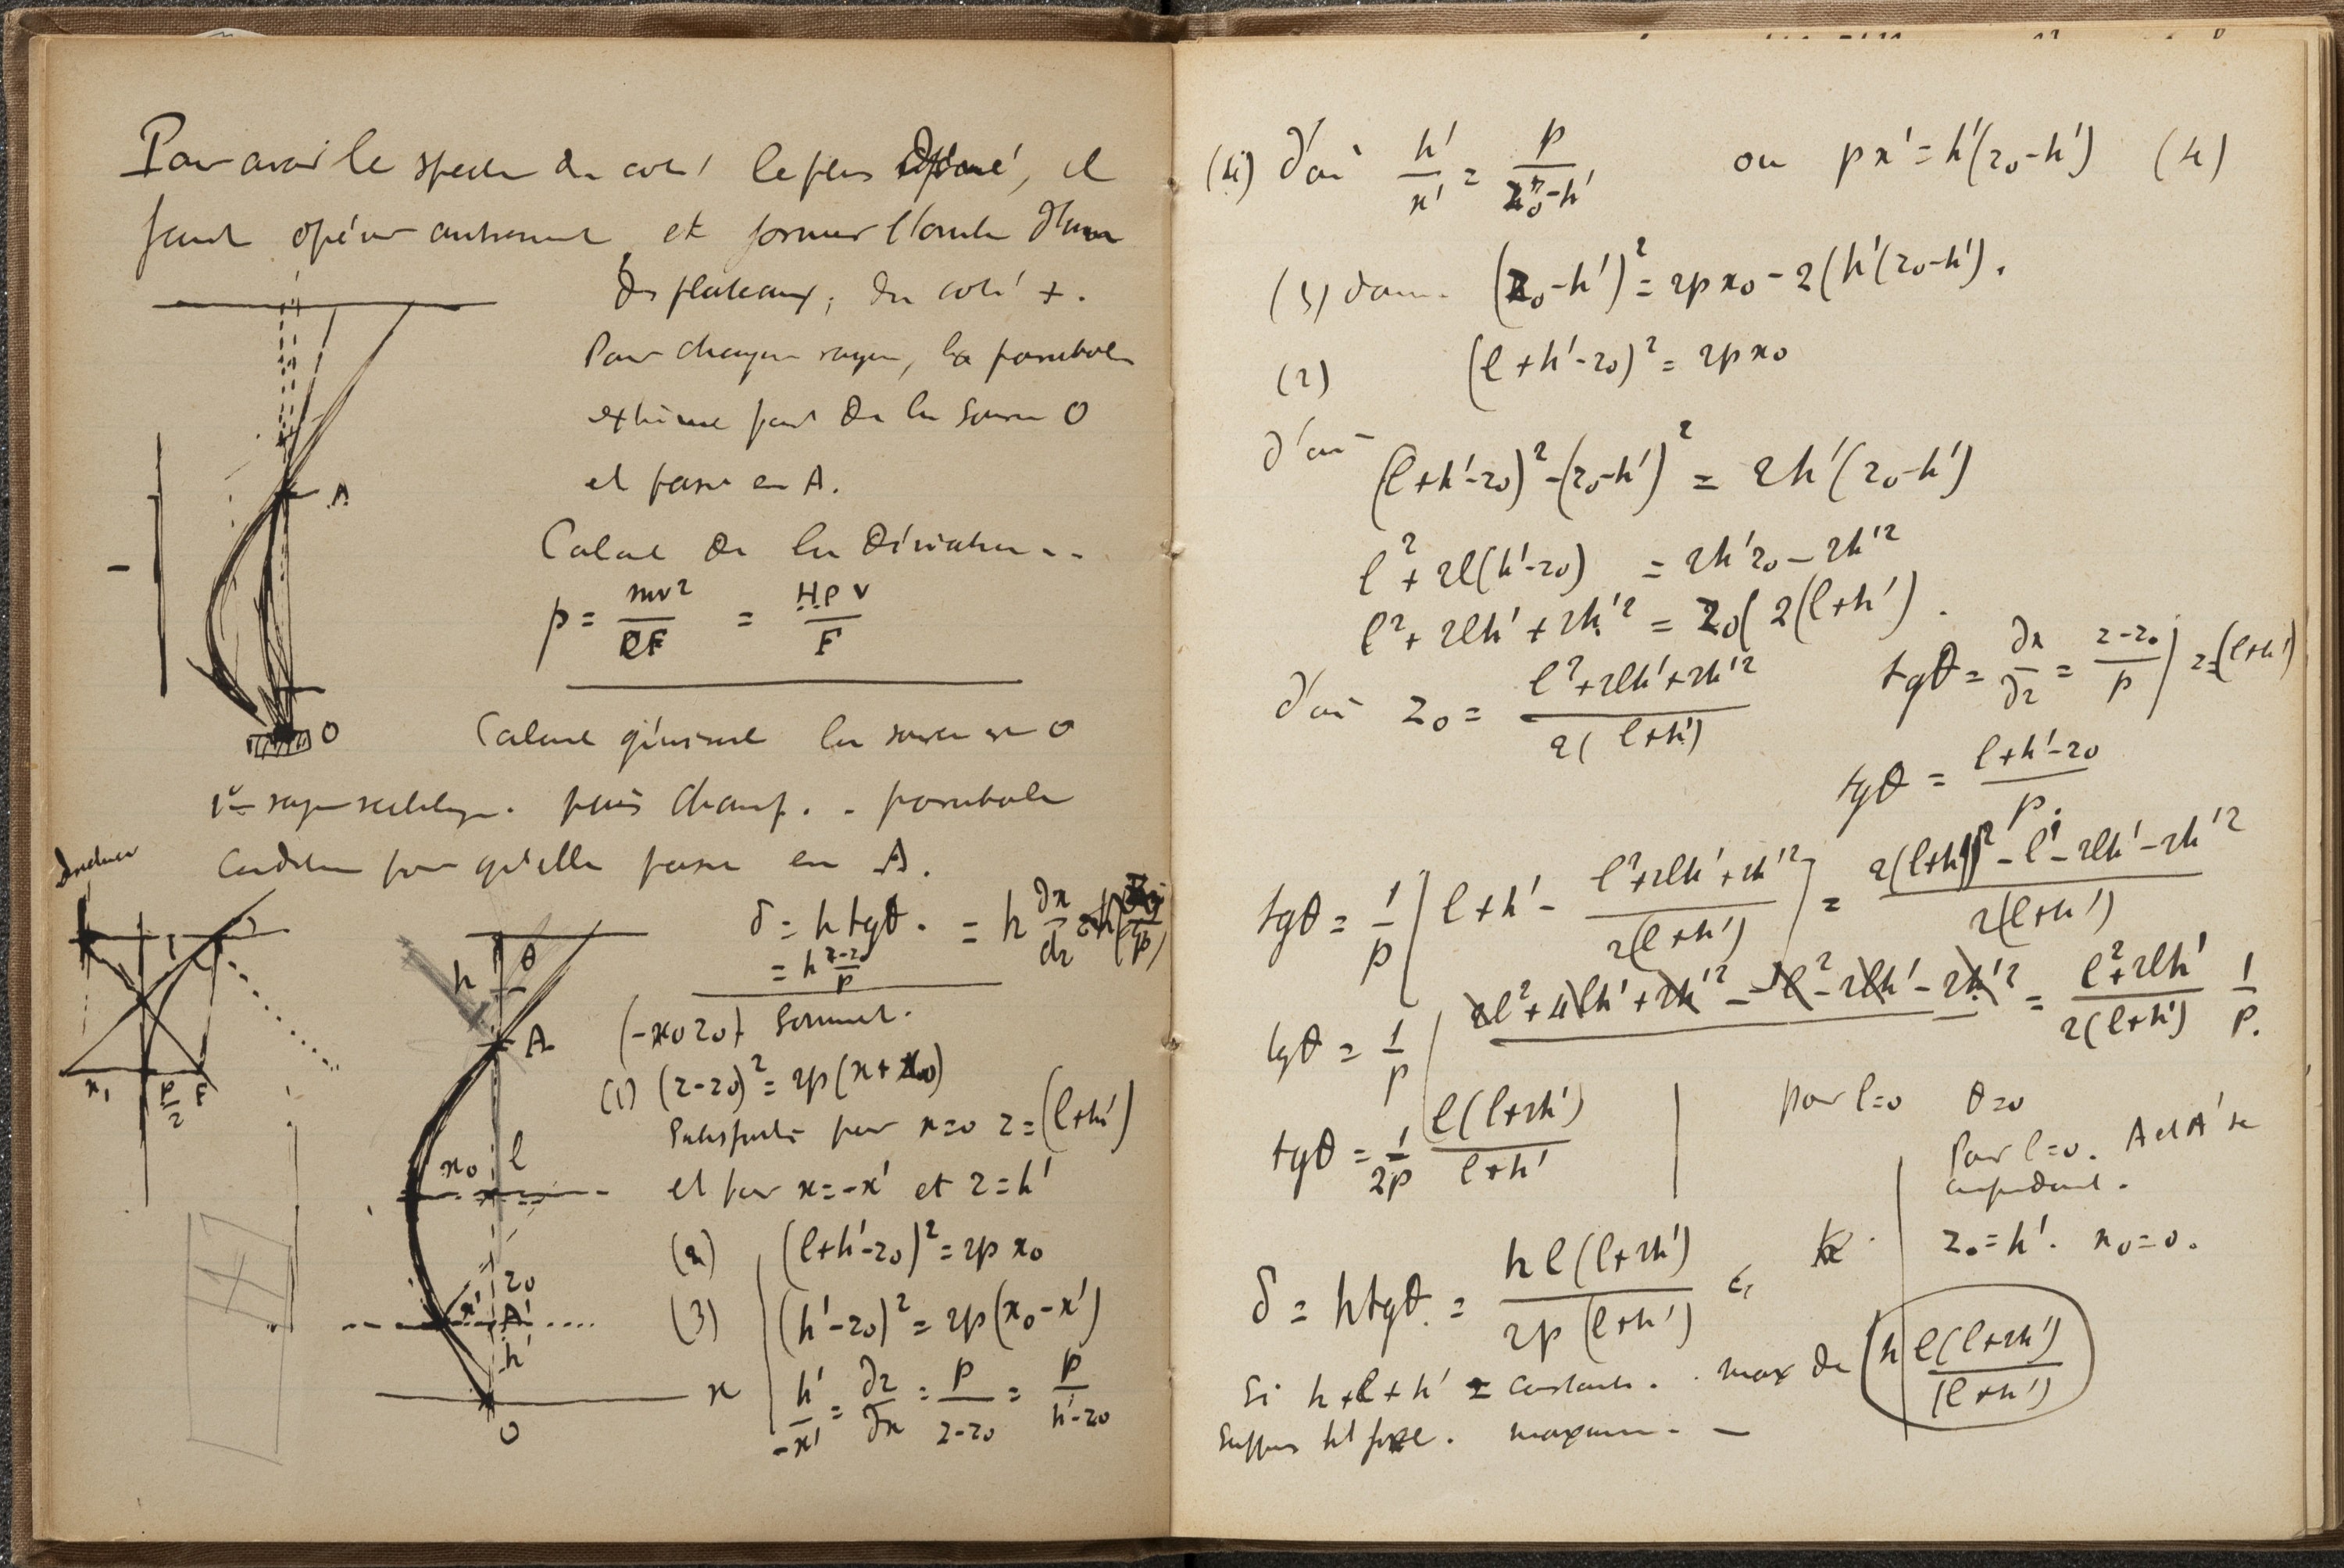 Pour avoir le spectre du coté le plus dévié, il
faut opérer autrement et former l'ombre d'un
des plateaux, du coté +.
Pour chaque rayon, la parabole
extrême part de la source O
et passe en A.
Calcul de la déviation..
p = mv² / eF = Hρv / F
A
-
O
Calcul général la source en O
1er rayon rectiligne. puis champ. . parabole
Condition pour qu'elle passe en A.
δ = h tgθ. = h ∂x/dz
= h (z-z₀)/p
(-x₀ z₀) Sommet.
(1) (z-z₀)² = 2p(x+x₀)
Satisfaite pour x=0 z=(l+h')
et pour x=-x' et z=h'
(2) (l+h'-z₀)² = 2p x₀
(3) (h'-z₀)² = 2p(x₀-x')
h'/-x' = ∂z/∂x = p/(z-z₀) = p/(h'-z₀)
x₁ p/2 F
h θ
A
x₀ l
z₀
x' A'
h'
x
O
(4) d'où h'/x' = p/(z₀-h') ou px' = h'(z₀-h') (4)
(3) donne (z₀-h')² = 2px₀ - 2(h'(z₀-h').
(2) (l+h'-z₀)² = 2px₀
d'où (l+h'-z₀)² - (z₀-h')² = 2h'(z₀-h')
l² + 2l(h'-z₀) = 2h'z₀ - 2h'²
l² + 2lh' + 2h'² = z₀( 2(l+h').
d'où z₀ = (l²+2lh'+2h'²) / 2(l+h')
tgθ = ∂x/∂z = (z-z₀)/p ) z=(l+h')
tgθ = (l+h'-z₀)/p.
tgθ = 1/p ( l+h' - (l²+2lh'+2h'²)/2(l+h') ) = (2(l+h')² - l² - 2lh' - 2h'²)/2(l+h')
tgθ = 1/p ( 2l² + 4lh' + 2h'² - l² - 2lh' - 2h'² = (l²+2lh')/2(l+h') 1/p.
tgθ = 1/2p l(l+2h')/(l+h')
pour l=0 θ=0
Pour l=0. A et A' se
confondent.
z₀=h'. x₀=0.
δ = h tgθ. = hl(l+2h') / 2p(l+h')
Si h+l+h' = constante. . max de (h l(l+2h')/(l+h')
Supposons h' fixe. maximum. —